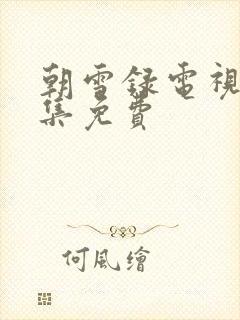 朝雪録電視
集免費
何風繪